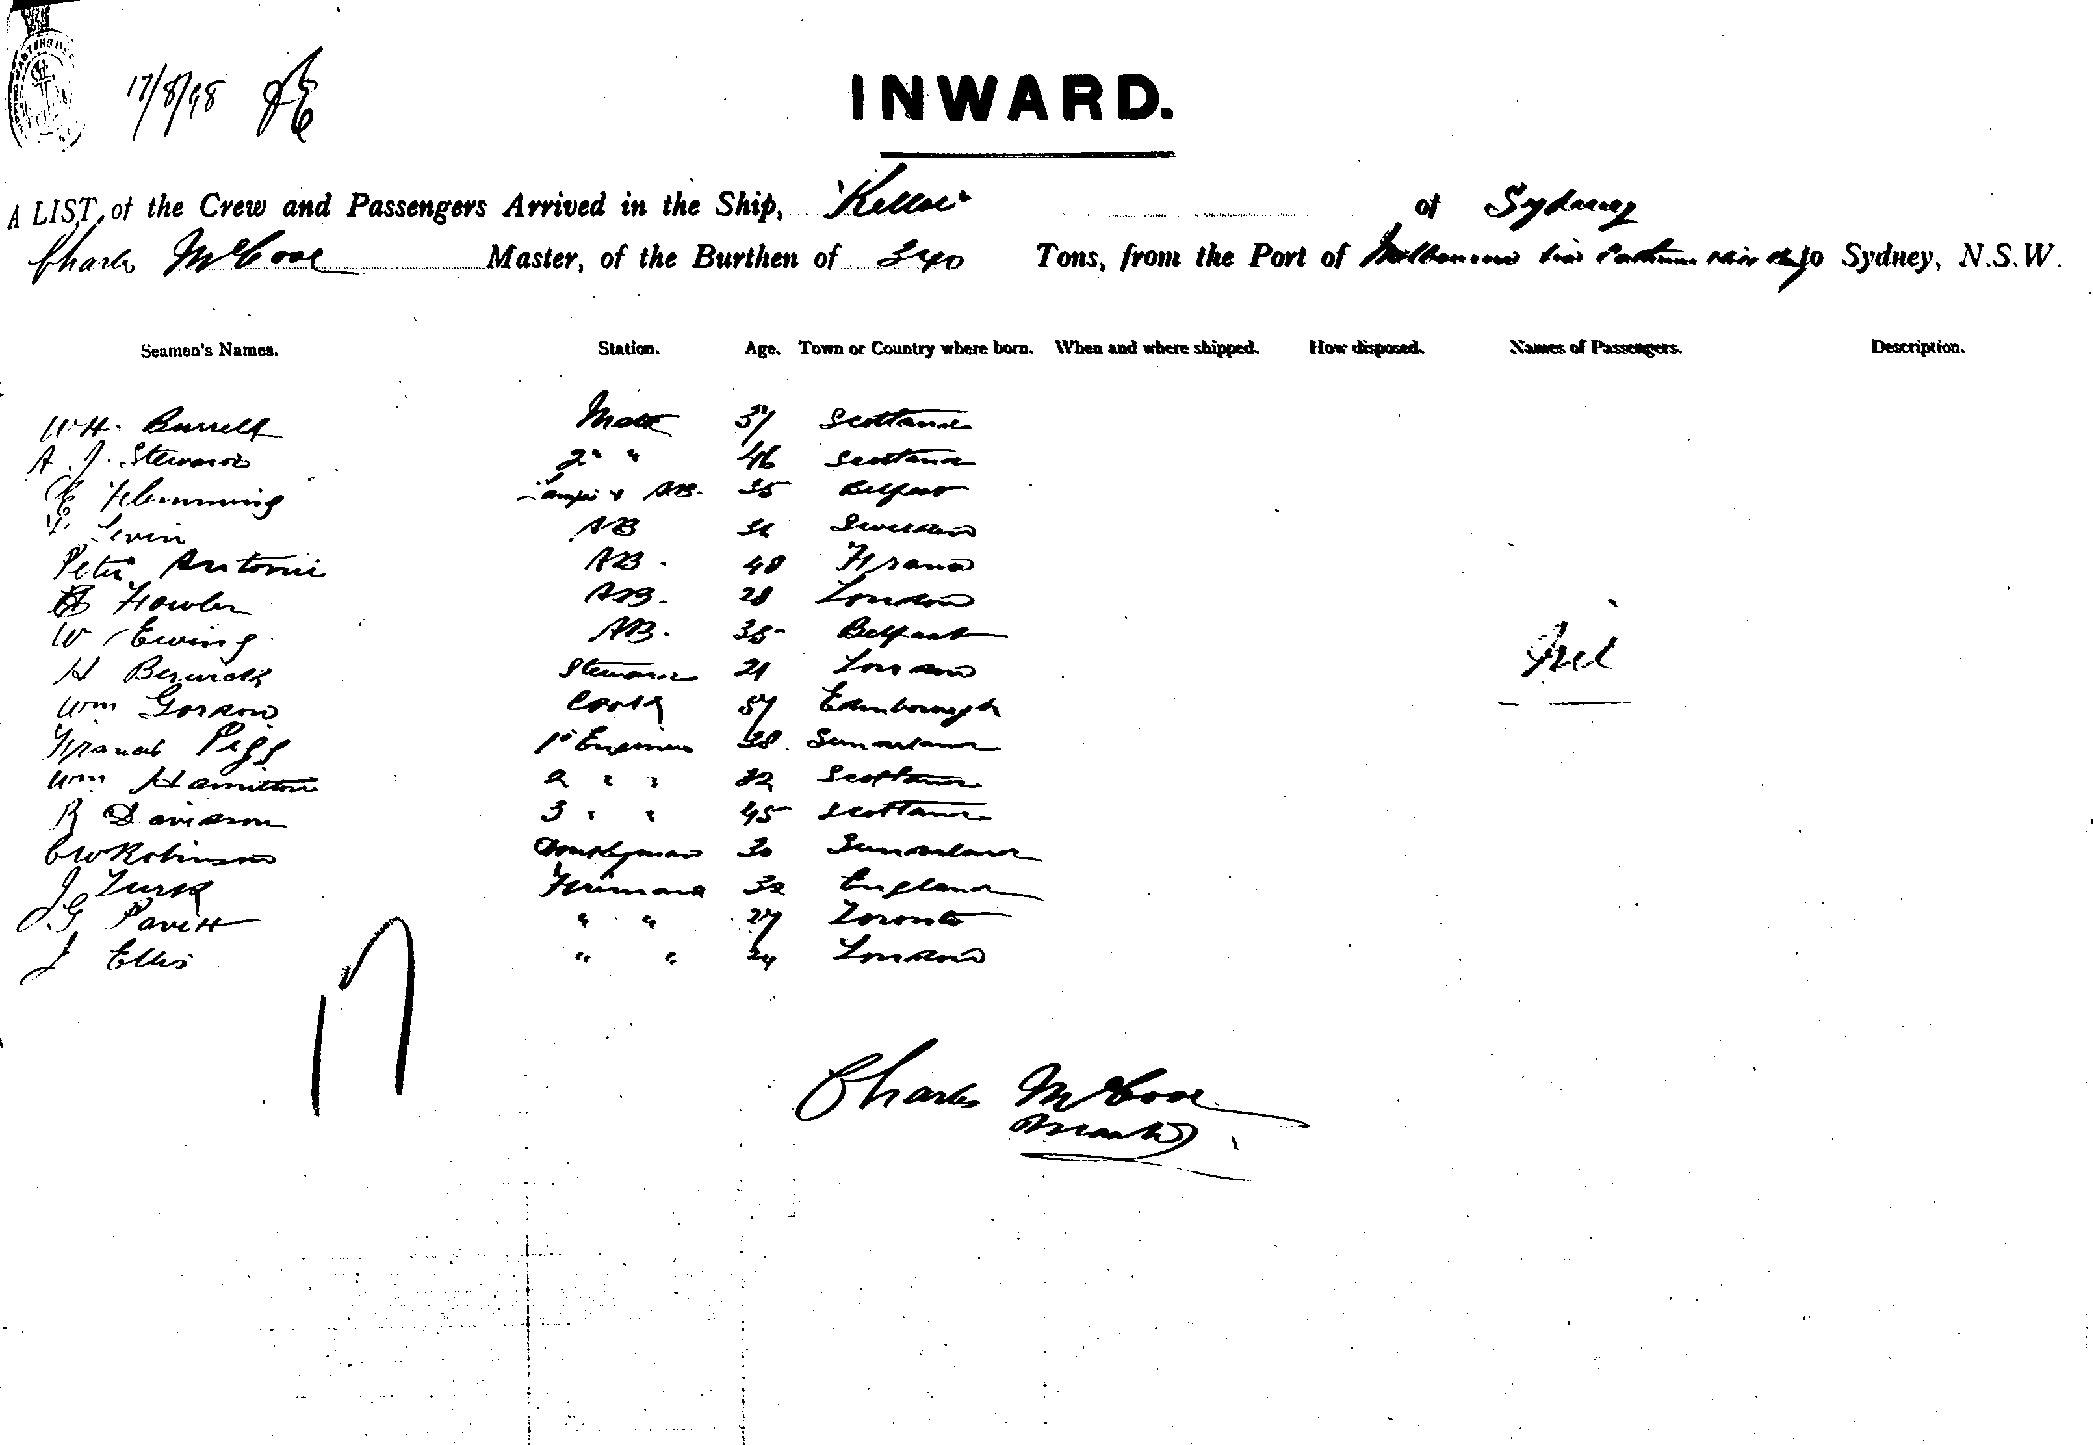 17/8/98
INWARD.
A LIST, of the Crew and Passengers Arrived in the Ship, of Sydney
Charles Master, of the Burthen of 340 Tons, from the Port of Melbourne via to Sydney, N.S.W.
Seamen's Names. Station. Age. Town or Country where born. When and where shipped. How disposed. Names of Passengers. Description.
W H. Burrell Mate 37 Scotland
A. J. Steward 2" " 46 Scotland
Flemming AB. 35 Belfast
Levin AB Sweden
Peter Antonie AB. 48
Fowler AB. 28 London
W Ewing AB. 35 Belfast
H Berwick Steward 21 London
Nil
Wm Gordon Cook 57 Edinborough
Francis Pigg 1st Engineer 38. Sunderland
Wm Hamilton 2 " " 32 Scotland
R Davidson 3 " " 45 Scotland
C W Robinson Donkeyman 30 Sunderland
J Turk Fireman 32 England
J. G Pavitt " " 27 Toronto
J Ellis " " 24 London
17
Charles
Master